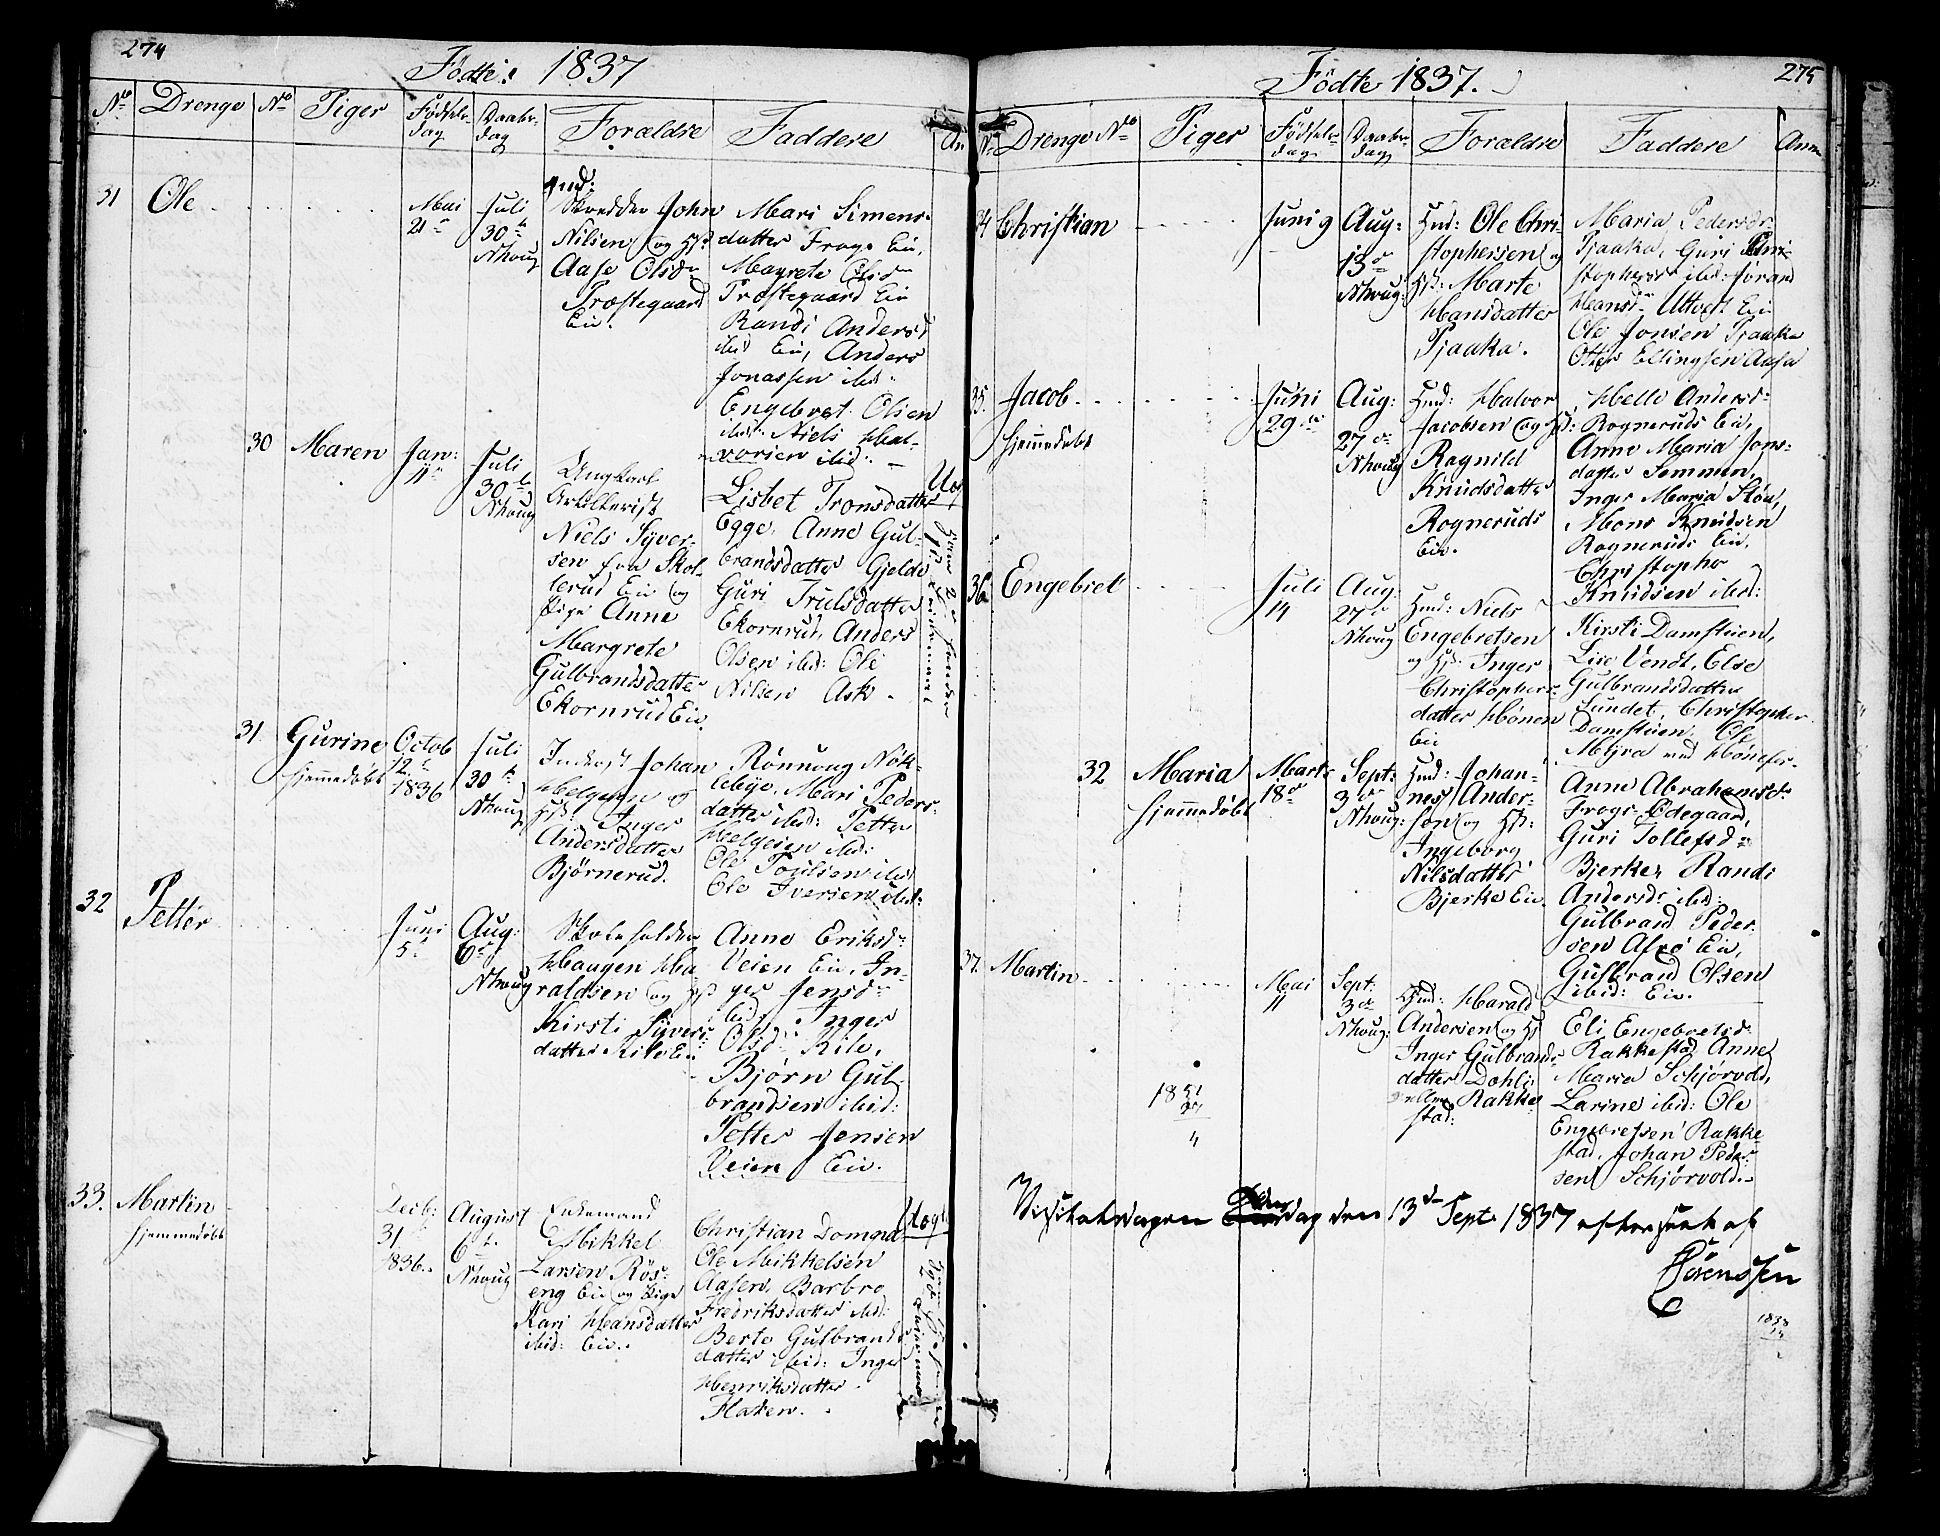 274
Födte: 1837
No Drenge No Piger Födselsdag Daabsdag Forældre Faddere An
31 Ole
Mai 21
Juli 30 Nhoug
Ind:
Skredder John
Nilsen og H:
Aase Olsd
Præstegaard
Eie.
Mari Simens-
datter Frogs Eie,
Margrete Olsd
Præstegaard Eie
Randi Andersd
ibid Eie, Anders
Jonassen ibid:
Engebret Olsen
ibid: Niels Hal-
vorsen ibid:
30 Maren
Jan: 11
Juli 30 Nhoug
Ungkarl
Artillerist
Niels Syver-
sen fra Skol-
lerud Eie og
Pige Anne
Margrete
Gulbrandsdatter
Ekornrud Eie.
Lisbet Tronsdatter
Egge, Anne Gul-
brandsdatter Gjelde
Guri Trulsdatter
Ekornrud, Anders
Olsen ibid: Ole
Nilsen Ask.
31 Gurine
hjemmedöbt
Octob 12 1836
Juli 30 Nhoug
Inderst Johan
Helgesen og
H: Inger
Andersdatter
Björnerud.
Rönnoug Nök-
lebye, Mari Peders-
datter ibid: Petter
Helgesen ibid:
Ole Poulsen ibid
Ole Iversen ibid:
32 Petter
Juni 5
Aug: 6 Nhoug
Skoleholder
Haagen Ha-
raldsen og H
Kirsti Syvers-
datter Kile Eie
Anne Eriksd
Veien Eie, In-
ger Jensd
ibid, Inger
Olsd Kile,
Björn Gul-
brandsen ibid:
Petter Jensen
Veien Eie.
33. Martin
hjemmedöbt
Decb: 31 1836.
August 6 Nhoug
Enkemand
Mikkel
Larsen Rös-
eng Eie og Pige
Kari Hansdatter
ibid: Eie.
Christian Domna
Ole Mikkelsen
Aasen, Barbro
Fredriksdatter ibid:
Berte Gulbrands-
datter ibid: Inger
Henriksdatter
Flaken.
Uægt
275
Födte 1837.
No Drenge No Piger Födselsdag Daabsdag Forældre Faddere Anm
34 Christian
Juni 9
Aug: 13 Nhoug:
Hmd: Ole Chri-
stophersen og
H: Marte
Hansdatter
Tjaaka.
Maria Pedersdr
Tjaaka, Guri Chri-
stophersd ibid: Jorand
Hansd Utvedt Eie
Ole Jonsen Tjaaka
Otter Ellingsen Aasa
35. Jacob
hjemmedöbt
Juni 29
Aug: 27 Nhoug
Hmd: Halvor
Jacobsen og H:
Ragnild
Knudsdatter
Rogneruds
Eie.
Helle Andersd
Rogneruds Eie,
Anne Maria Jons-
datter Semmen,
Inger Maria Stöa,
Mons Knudsen
Rogneruds Eie,
Christopher
Knudsen ibid:
36 Engebret
Juli 14
Aug: 27 Nhoug
Hmd: Niels
Engebretsen
og H: Inger
Christophers-
datter Hönen
Eie
Kirsti Damstuen,
Lise Vendt, Else
Gulbrandsdatter
Lundet, Christopher
Damstuen, Ole
Myra ved Hönefos-
32 Maria
hjemmedöbt
Marts 18
Sept: 3 Nhoug:
Hmd: Johan-
nes Ander-
sen og H:
Ingeborg
Nilsdatter
Bjerke Eie
Anne Abrahamsdr
Frogs Ödegaard,
Guri Tollefsd
Bjerke, Randi
Andersdr ibid:
Gulbrand Peder-
sen Eie,
Gulbrand Olsen
ibid: Eie.
37. Martin
Mai 11
Sept: 3 Nhoug:
Hmd: Harald
Andersen og H
Inger Gulbrands-
datter Dæhli
Rakke-
stad:
Eli Engebretsd
Rakkestad, Anne
Maria Schjörvold,
Larine ibid: Ole
Engebretsen Rakke-
stad, Johan Peder-
sen Schjörvold.
1851
37
4
Visitatsdagen Onsdag den 13de Sept: 1837 efterseet af
Sörenssen
1838